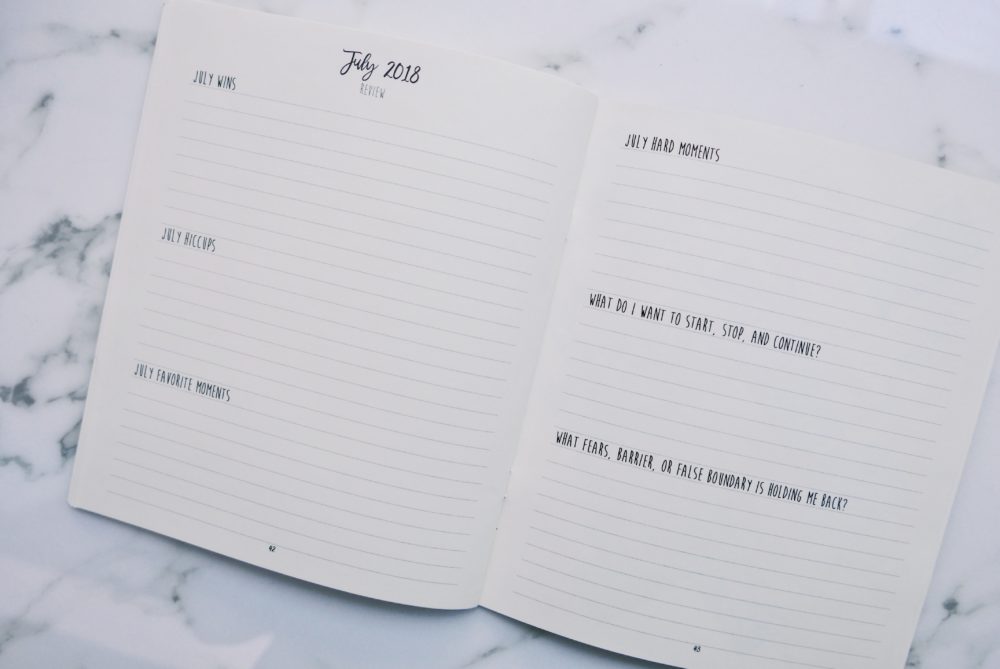 July 2018
REVIEW
JULY WINS
JULY HICCUPS
JULY FAVORITE MOMENTS
42
JULY HARD MOMENTS
WHAT DO I WANT TO START, STOP, AND CONTINUE?
WHAT FEARS, BARRIER, OR FALSE BOUNDARY IS HOLDING ME BACK?
43